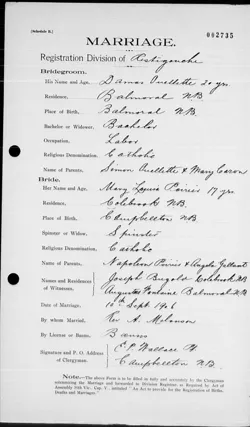 (Schedule B.)
002735
MARRIAGE.
Registration Division of Restigouche
Bridegroom.
His Name and Age. Damas Ouellette 20 yrs
Residence, Balmoral NB
Place of Birth, Balmoral NB
Bachelor or Widower, Bachelor
Occupation, Labor
Religious Denomination, Catholic
Name of Parents, Simon Ouellette & Mary Caron
Bride.
Her Name and Age. Mary Louise 17 yrs
Residence, Colebrook NB.
Place of Birth, Campbellton NB
Spinster or Widow, Spinster
Religious Denomination, Catholic
Name of Parents, Napoleon & Angele Gallant
Names and Residences of Witnesses, Joseph Colebrook NB
Augustus Fontaine Balmoral NB
Date of Marriage, 10th Sept 1906
By Whom Married, Rev A. Melanson
By License or Banns, Banns
Signature and P. O. Address of Clergyman, E. P. Wallace
Campbellton N.B.
NOTE.—The above Form is to be filled in fully and accurately by the Clergyman solemnizing the Marriage and forwarded to Division Registrar as Required by Act of Assembly Vic. Cap. V. entitled "An Act to provide for the Registration of Births, Deaths and Marriages."